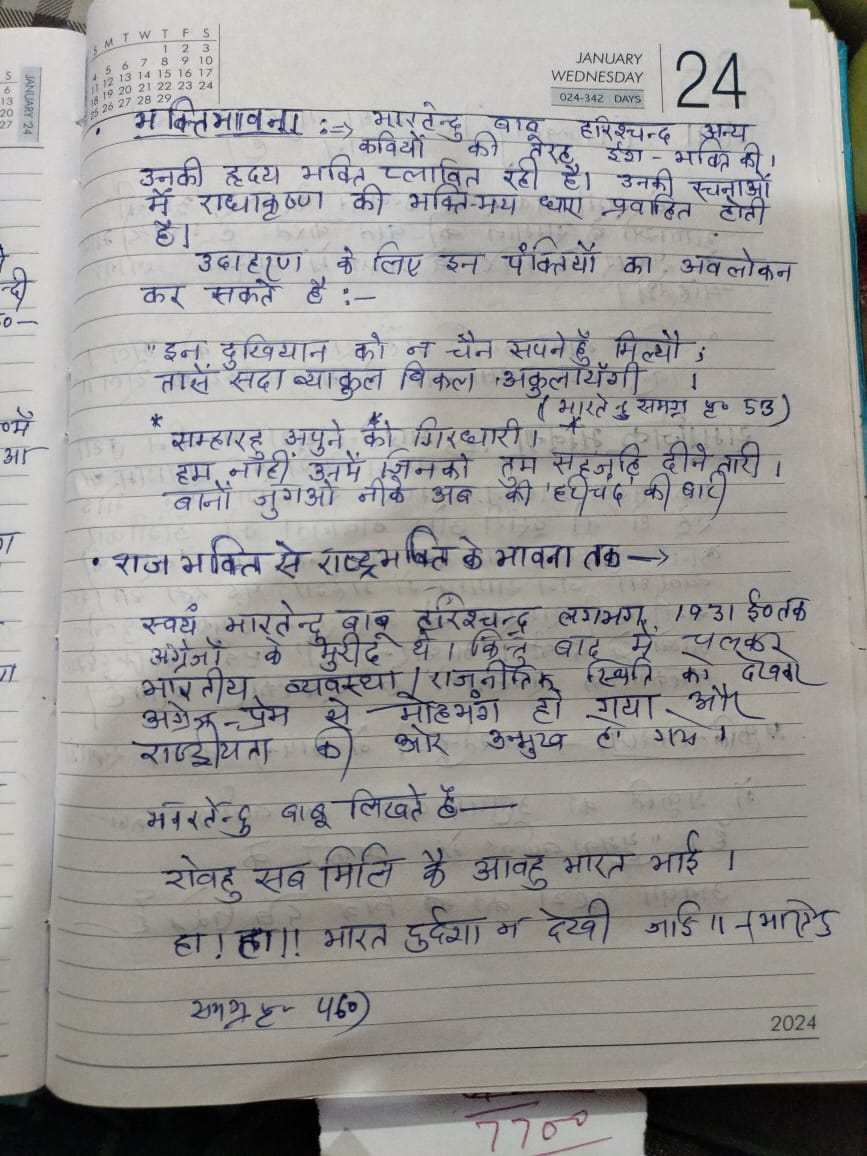 S M T W T F S
1 2 3
4 5 6 7 8 9 10
11 12 13 14 15 16 17
18 19 20 21 22 23 24
25 26 27 28 29
JANUARY
WEDNESDAY
024-342 DAYS
24
JANUARY 24
S
6
13
20
27
• भक्तिभावना :⇒ भारतेन्दु बाबू हरिश्चन्द्र अन्य
कवियों की तरह ईश-भक्ति की।
उनकी हृदय भक्ति प्लावित रही है। उनकी रचनाओं
में राधाकृष्ण की भक्ति-मय धारा प्रवाहित होती
है।
उदाहरण के लिए इन पंक्तियों का अवलोकन
कर सकते है :-
"इन दुखियान को न चैन सपनेहुँ मिल्यौ ;
तासें सदा व्याकूल विकल अकुलायँगी ।
(भारतेन्दु समग्र पृ० 53)
* सम्हारहु अपुने को गिरधारी। *
हम नाहीं उनमें जिनको तुम सहजहि दीने तारी।
बानों जुगओ नीके अब की 'हरीचंद' की बारी
• राज भक्ति से राष्ट्रभक्ति के भावना तक →
स्वयं भारतेन्दु बाबू हरिश्चन्द्र लगभग 1931 ई० तक
अंग्रेजों के मुरीद थे। किन्तु बाद में चलकर
भारतीय व्यवस्था/राजनीतिक स्थिति को देखकर
अंग्रेज-प्रेम से मोहभंग हो गया और
राष्ट्रीयता की ओर उन्मुख हो गये।
भारतेन्दु बाबू लिखते हैं—
रोवहु सब मिलि कै आवहु भारत भाई ।
हा! हा!! भारत दुर्दशा न देखी जाई ॥ - (भारतेन्दु
समग्र पृ- 460)
2024
7700